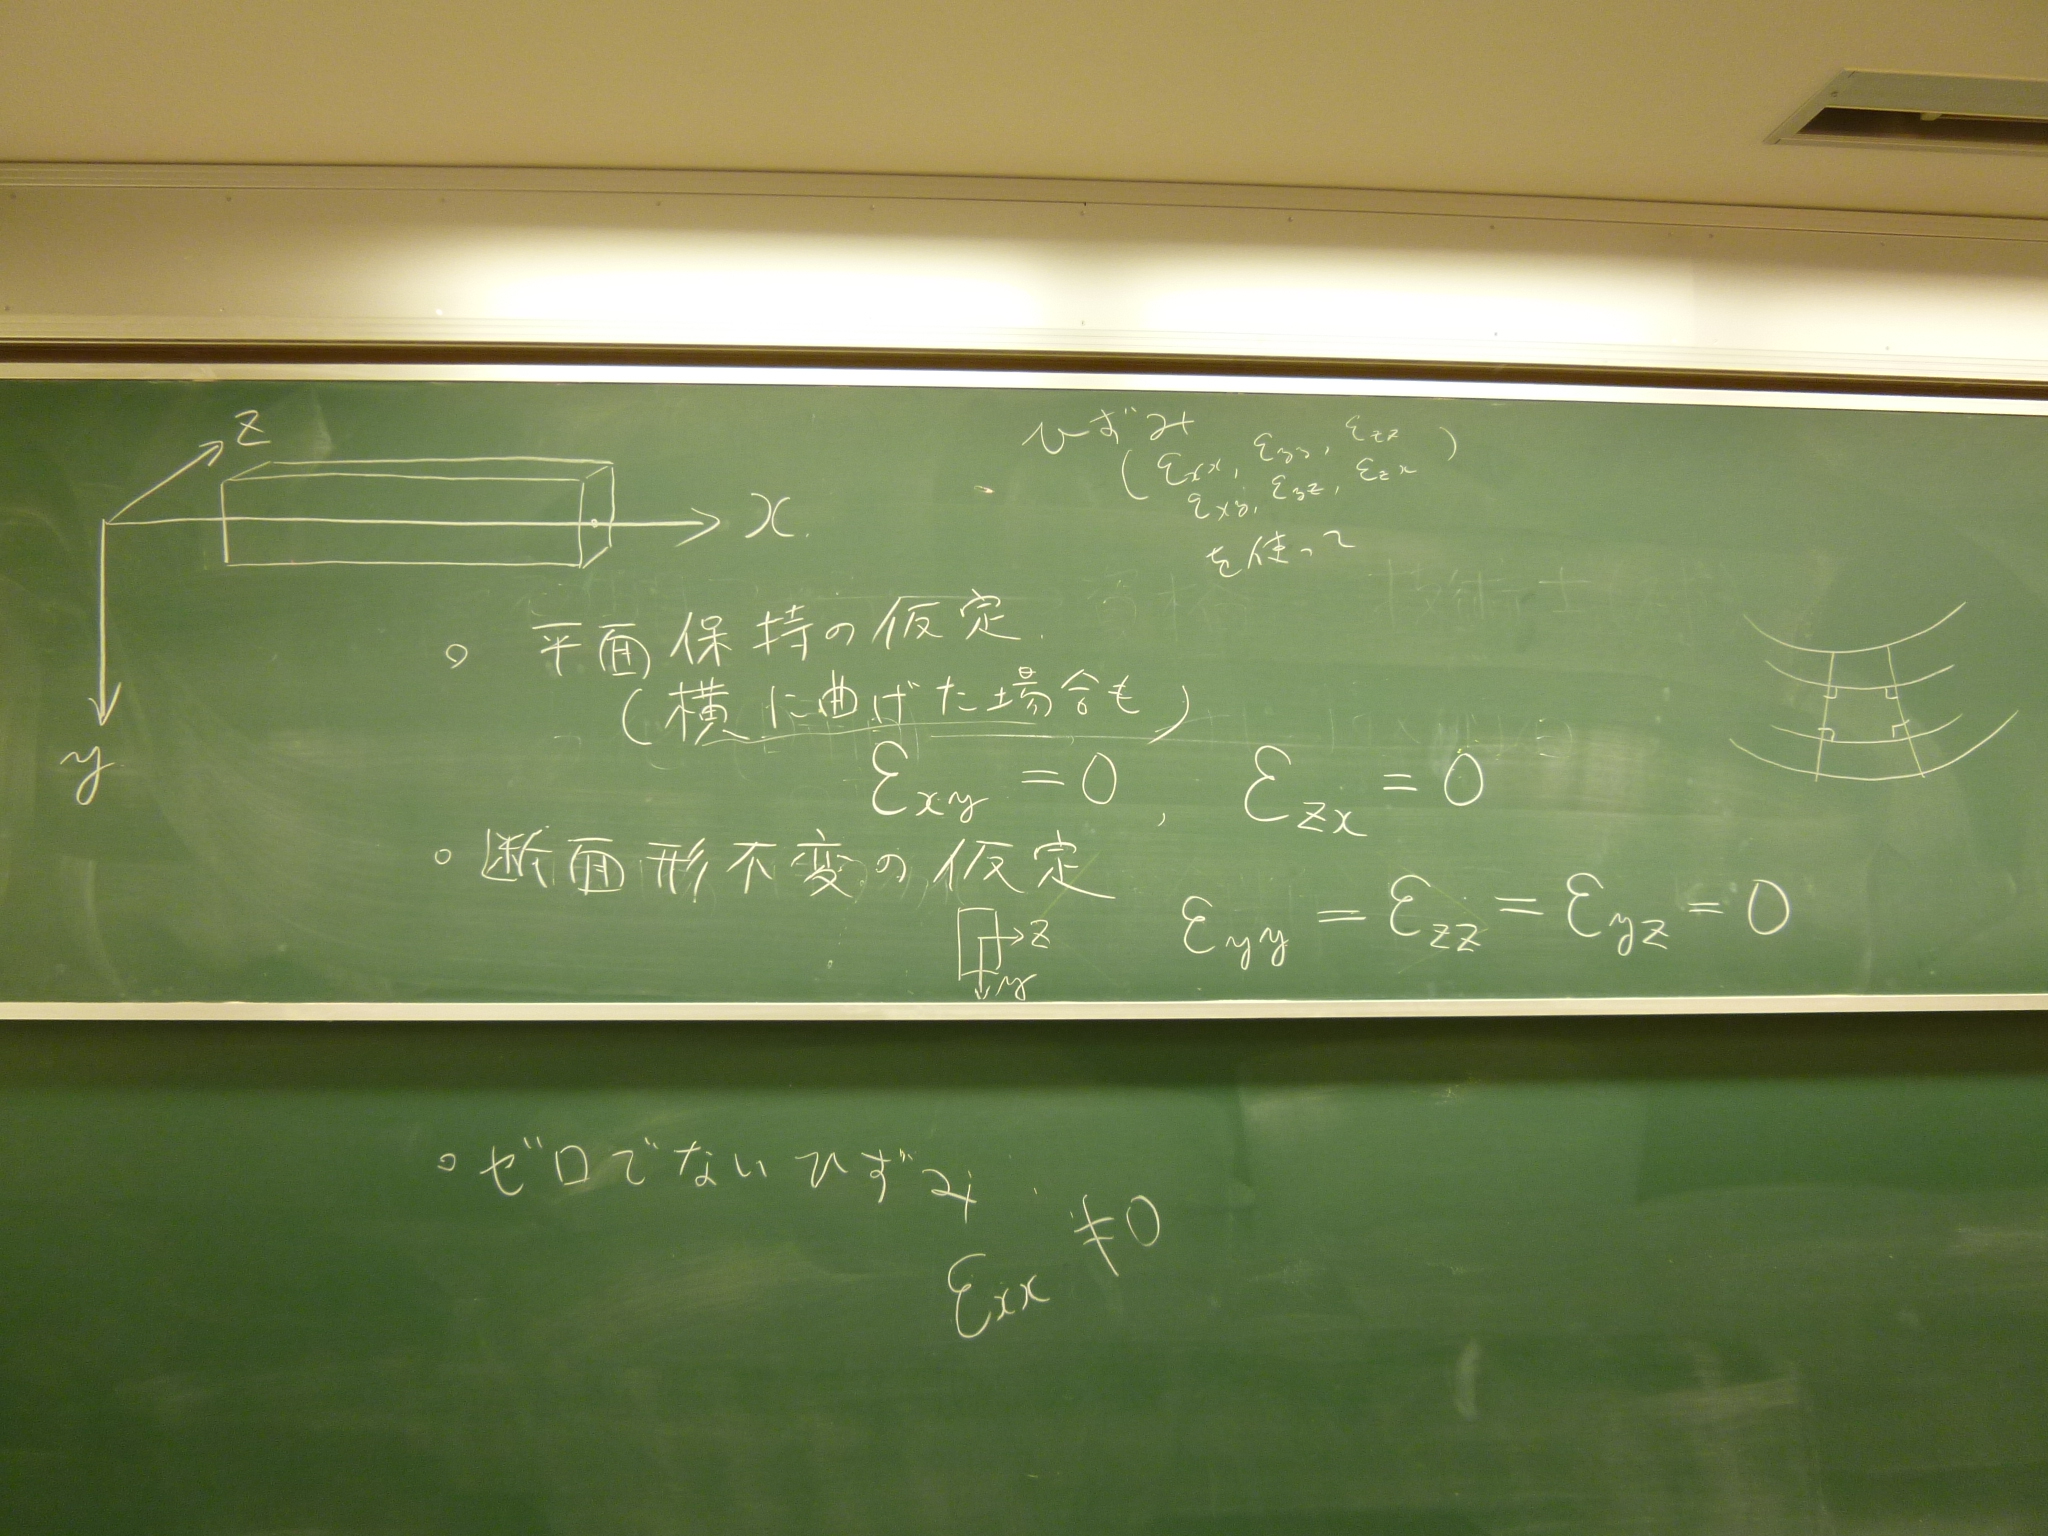 z
x
y
ひずみ
(εxx, εyy, εzz)
εxy, εyz, εzx
を使って
。平面保持の仮定.
(横に曲げた場合も)
εxy = 0, εzx = 0
。断面形不変の仮定
z
y
εyy = εzz = εyz = 0
。ゼロでないひずみ
εxx ≠ 0